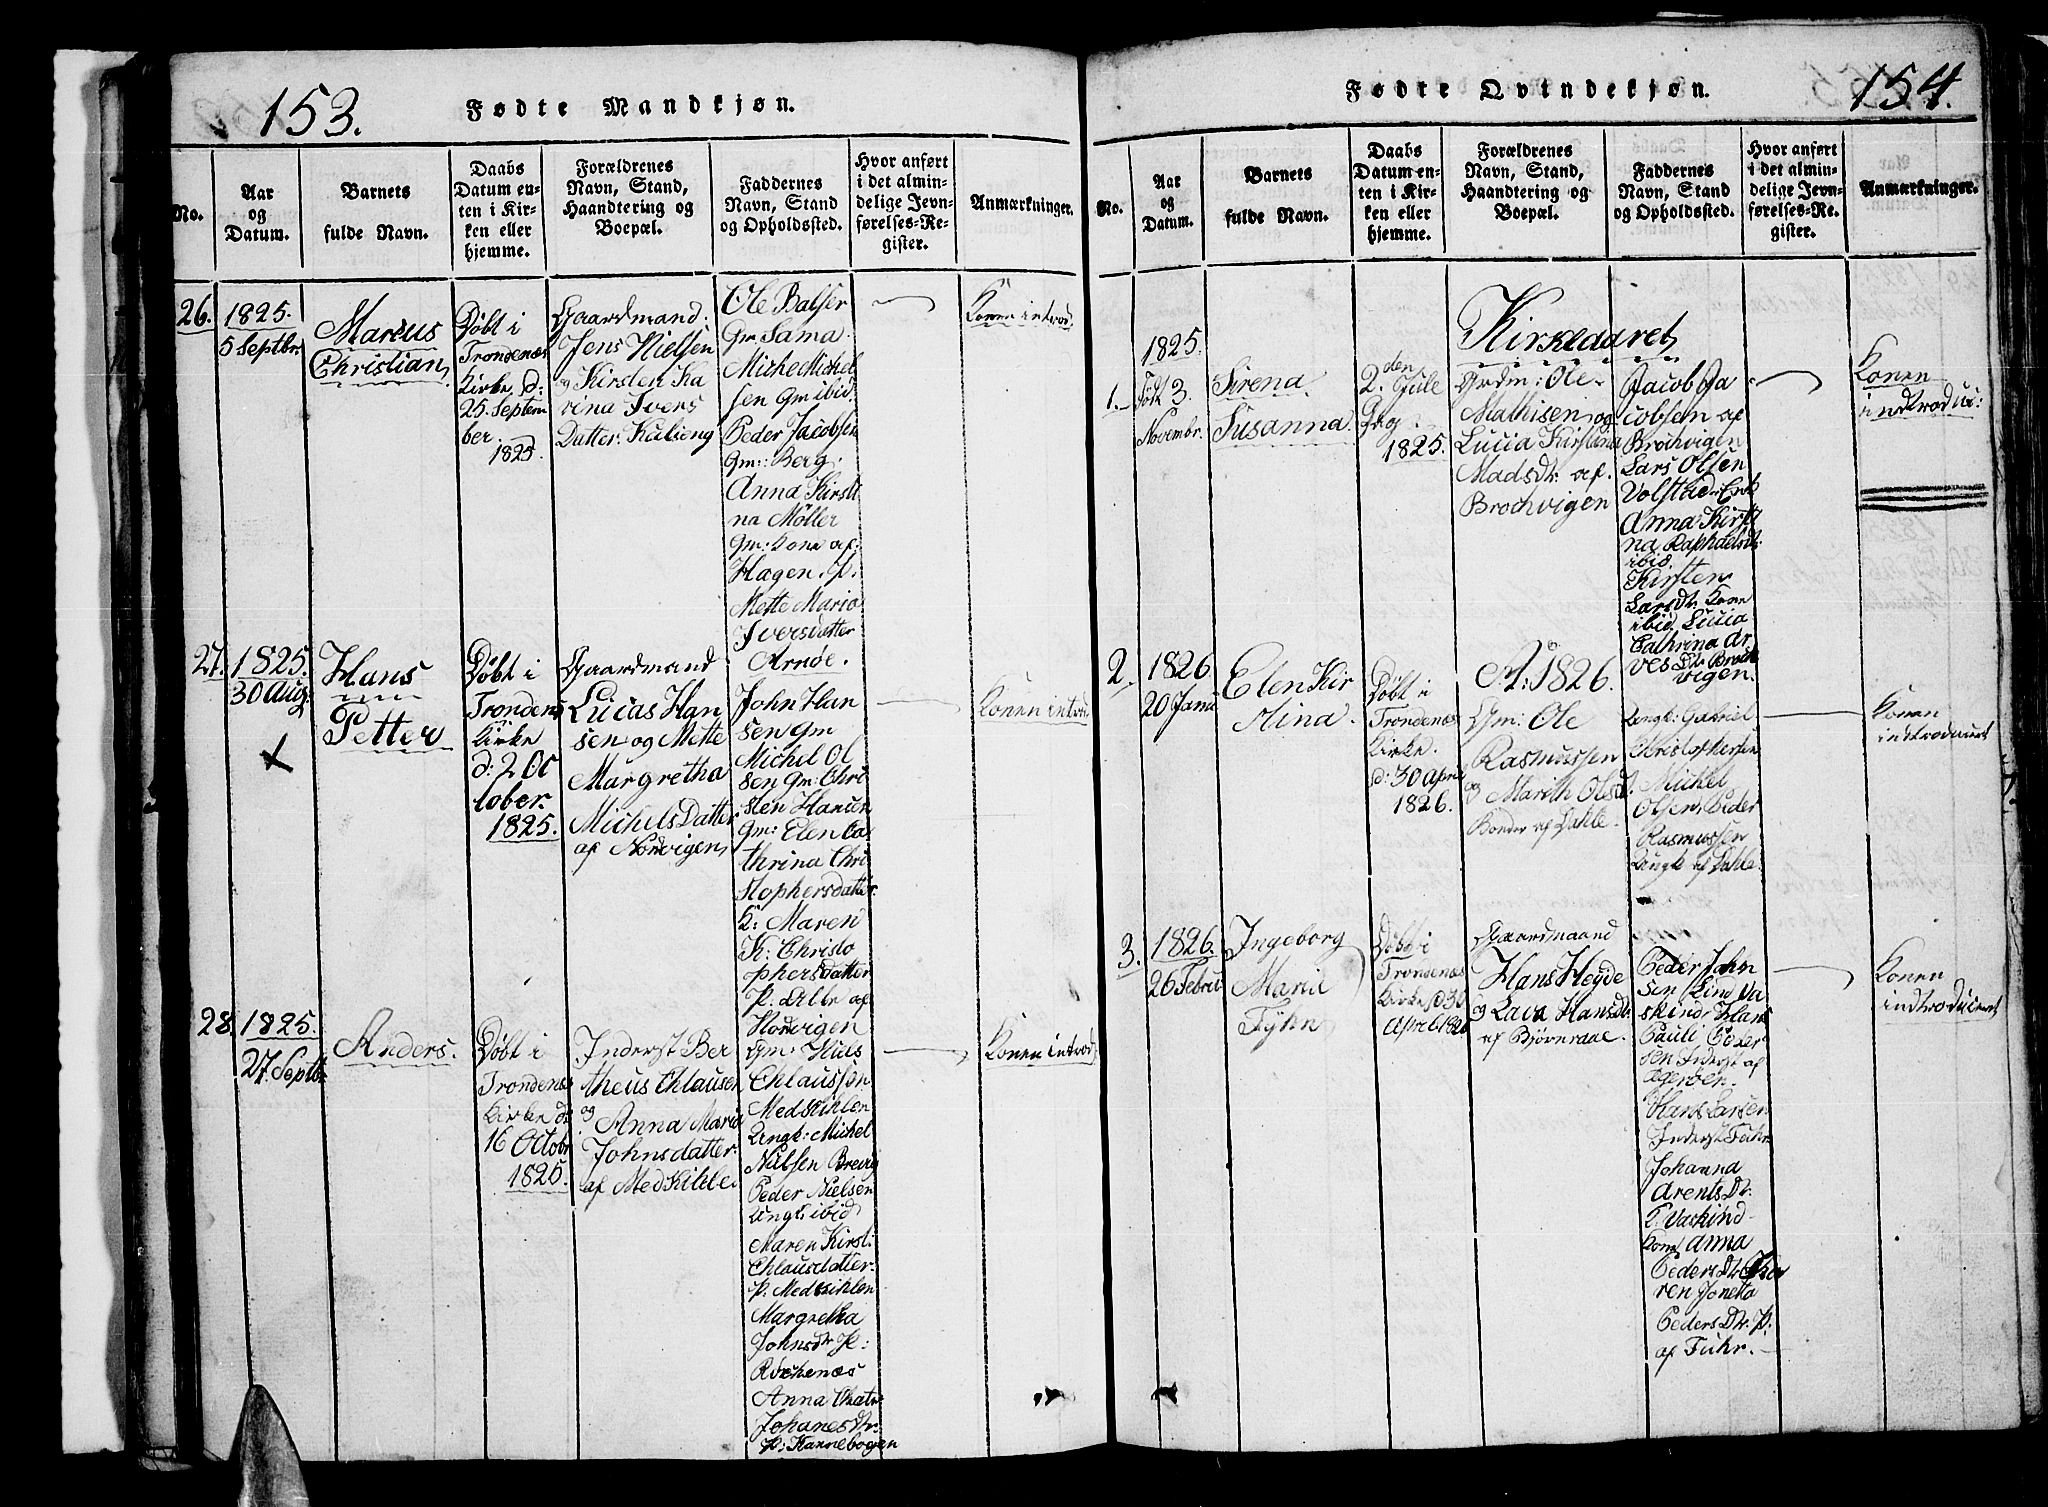 153.
Fødte Mandkjøn.
No.
Aar
og
Datum.
Barnets
fulde Navn.
Daabs
Datum en-
ten i Kir-
ken eller
hjemme.
Forældrenes
Navn, Stand,
Haandtering og
Boepæl.
Faddernes
Navn, Stand
og Opholdssted.
Hvor anført
i det almin-
delige Jevn-
førelses-Re-
gister.
Anmærkninger.
26.
1825.
5 Septbr.
Marcus
Christian
Døbt i
Trondenæs
Kirke d:
25. Septem
ber.
1825.
Gaardmand.
Jens Nielsen
og Kirsten Ka
rina Ivers
Datter. Kulseng
Ole Balser
Gm Sama
Miche Michel
sen Gm ibid
Peder Jacobsen
Gm: Berg.
Anna Kirsti
na Møller
Gm: Kone af:
Hagen. P.
Mette Maria
Iversdatter
Arnøe.
Konen introd.
27.
1825.
30 Aug.
Hans
Petter
Døbt i
Trondens
Kirke
d: 2 Oc
tober.
1825.
Gaardmand
Lucas Han
sen og Mette
Margretha
Michels Datter
af Nordvigen
John Han
sen Gm
Michel Ol
sen Gm: Chri
sten Hansen
Gm: Elen Ca
thrina Chri
stophersdatter
K: Maren
K: Christo
phersdatter
P. alle af
Nordvigen
Konen introd.
28.
1825.
27. Septb.
Anders.
Døbt i
Trondenæs
Kirke d.
16 Octobr
1825.
Inderst Ber
theus Chlausen
og
Anna Maria
Johnsdatter
af Medkihle
Gm: Nils
Chlaussøn
Medkihlen
Ungk: Michel
Nielsen Brevig
Peder Nielsen
Ungk: ibid
Maren Kirst:
Chlausdatter
P. Medkihlen
Margretha
Johnsdr P:
Rochenæs
Anna
Johanes Dtr
P: Hannebogen
Konen introd.
154.
Fødte Qvindekjøn.
No.
Aar
og
Datum.
Barnets
fulde Navn.
Daabs
Datum en-
ten i Kir-
ken eller
hjemme.
Forældrenes
Navn, Stand,
Haandtering og
Boepæl.
Faddernes
Navn, Stand
og Opholdssted.
Hvor anført
i det almin-
delige Jevn-
førelses-Re-
gister.
Anmærkninger.
Kirkeaaret
1.
1825.
Født 3.
Novembr.
Sirena
Susanna.
2.den Jule
Dag
1825.
Grdm: Ole
Mathisen og
Lucia Kirstina
Madsdtr: af
Brochvigen
Jacob Ja
cobsen af
Brochvigen
Lars Olsen
Volstad Enk
Anna Kirsti
na Raphaelsdtr
ibid.
Kirsten
Larsdtr. Kone
ibid. Lucia
Cathrina Ar
ves Dtr Broch
vigen.
Konen
indtroduc:
2.
1826.
20 Janu
Elen Kir
stina.
Døbt i
Trondenæs
Kirke.
d: 30 April
1826.
Aº: 1826.
Gm: Ole
Rasmussen
og Marith Olsdr.
Bonder af Dahle.
Ungk: Gabriel
Christophersen
Michel
Olsen, Peder
Rasmussen
Ungk af Dahle.
Konen
indtroducert
3.
1826.
26 Febru
Ingeborg
Marie
Fyhn
Døbt i
Trondenæs
Kirke d 30
April 1826
Gaardmaand
Hans Heyde
og Lava Hansdtr
af Bjørnraae.
Peder John
sen Lind Va
skind Hans
Pauli Peder
sen Inderst af
Agerøen.
Hans Larsen
Inderst Fuhr
Johanna
Arents Dtr:
P. Vaskind
Kone Anna
Peders Dtr. Ka
ren Joneta
Peders Dtr: P.
af Fuhr.
Konen
indtroducert